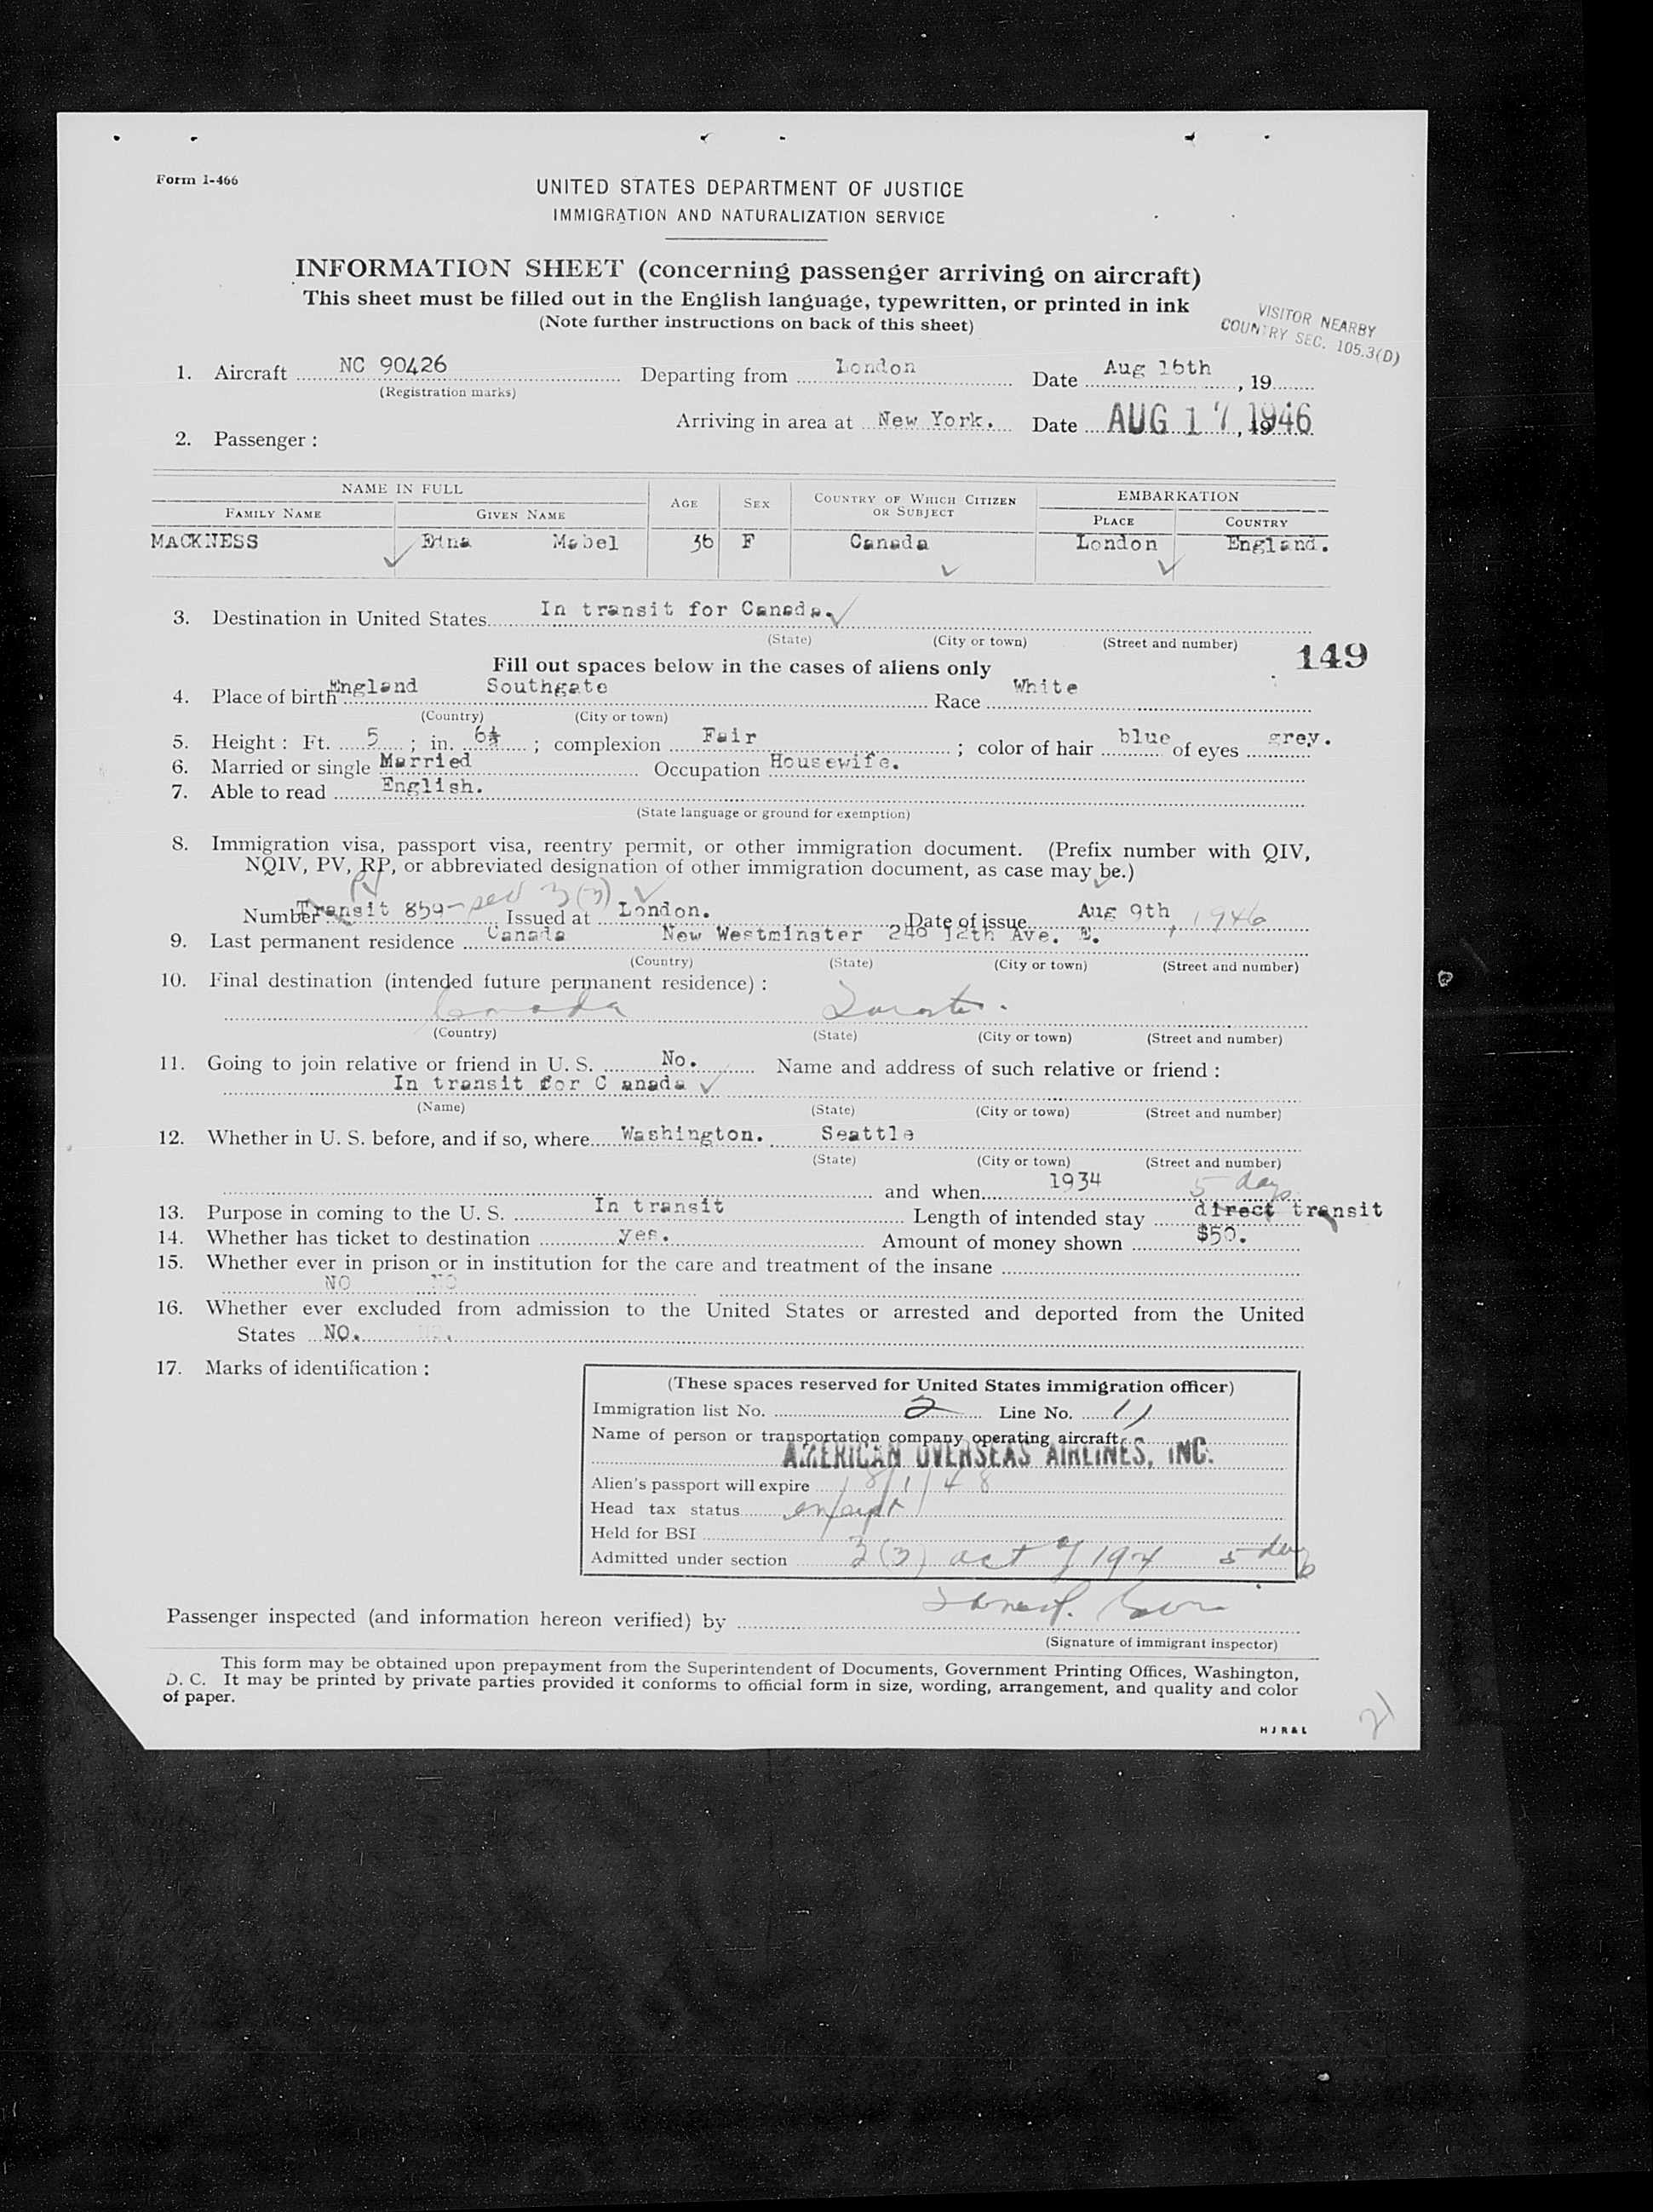 Form I-466
UNITED STATES DEPARTMENT OF JUSTICE
IMMIGRATION AND NATURALIZATION SERVICE
INFORMATION SHEET (concerning passenger arriving on aircraft)
This sheet must be filled out in the English language, typewritten, or printed in ink
(Note further instructions on back of this sheet)
VISITOR NEARBY
COUNTRY SEC. 105.3(D)
1. Aircraft NC 90426 Departing from London Date Aug 16th, 19
(Registration marks)
Arriving in area at New York. Date AUG 17 1946, 19
2. Passenger :
NAME IN FULL AGE SEX COUNTRY OF WHICH CITIZEN OR SUBJECT EMBARKATION
FAMILY NAME GIVEN NAME PLACE COUNTRY
MACKNESS Edna Mabel 36 F Canada London England.
3. Destination in United States In transit for Canada.
(State) (City or town) (Street and number)
149
Fill out spaces below in the cases of aliens only
4. Place of birth England Southgate Race White
(Country) (City or town)
5. Height : Ft. 5 ; in. 6½ ; complexion Fair ; color of hair blue of eyes grey.
6. Married or single Married Occupation Housewife.
7. Able to read English.
(State language or ground for exemption)
8. Immigration visa, passport visa, reentry permit, or other immigration document. (Prefix number with QIV,
NQIV, PV, RP, or abbreviated designation of other immigration document, as case may be.)
PV
Number Transit 859 - sec 3(3) Issued at London. Date of issue Aug 9th, 1946
9. Last permanent residence Canada New Westminster 240 12th Ave. E.
(Country) (State) (City or town) (Street and number)
10. Final destination (intended future permanent residence) :
Canada Toronto.
(Country) (State) (City or town) (Street and number)
11. Going to join relative or friend in U. S. No. Name and address of such relative or friend :
In transit for C anada
(Name) (State) (City or town) (Street and number)
12. Whether in U. S. before, and if so, where Washington. Seattle
(State) (City or town) (Street and number)
and when 1934
5 days
13. Purpose in coming to the U. S. In transit Length of intended stay direct transit
14. Whether has ticket to destination yes. Amount of money shown $50.
15. Whether ever in prison or in institution for the care and treatment of the insane
NO NO
16. Whether ever excluded from admission to the United States or arrested and deported from the United
States NO.
17. Marks of identification :
(These spaces reserved for United States immigration officer)
Immigration list No. 2 Line No. 11
Name of person or transportation company operating aircraft
AMERICAN OVERSEAS AIRLINES, INC.
Alien's passport will expire 1/8/1/48
Head tax status exempt
Held for BSI
Admitted under section 3(3) act of 1924 5 days
Passenger inspected (and information hereon verified) by
(Signature of immigrant inspector)
This form may be obtained upon prepayment from the Superintendent of Documents, Government Printing Offices, Washington,
D. C. It may be printed by private parties provided it conforms to official form in size, wording, arrangement, and quality and color
of paper.
HJR&L
21